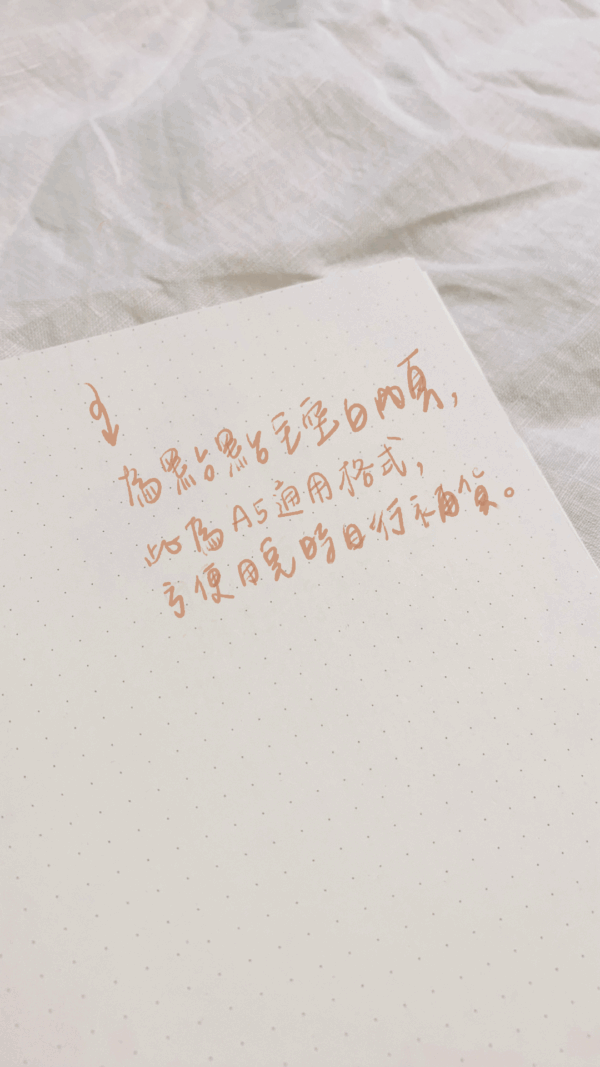 為點點全空白內頁,
此為A5通用格式,
方便用完時自行補貨。